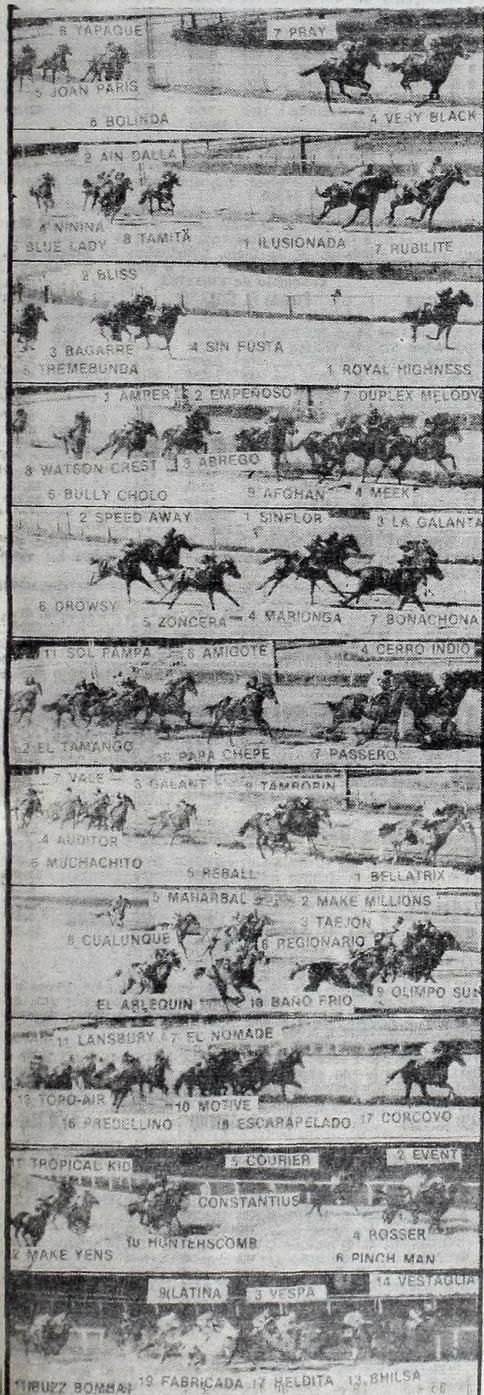 6 YAPAQUE 7 PRAY
5 JOAN PARIS
8 BOLINDA 4 VERY BLACK
2 AIN DALLA
4 NININA
BLUE LADY 8 TAMITA 1 ILUSIONADA 7 RUBILITE
2 BLISS
3 BAGARRE 4 SIN FUSTA
TREMEBUNDA 1 ROYAL HIGHNESS
1 AMPER 2 EMPEÑOSO 7 DUPLEX MELODY
8 WATSON CREST 3 ABREGO
6 BULLY CHOLO 9 AFGHAN 4 MEEK
2 SPEED AWAY 1 SINFLOR 3 LA GALANTA
6 DROWSY
5 ZONCERA 4 MARIONGA 7 BONACHONA
11 SOL PAMPA 6 AMIGOTE 4 CERRO INDIO
2 EL TAMANGO PAPA CHEPE 7 PASSERO
7 VALE GALANT 9 TAMBORIN
4 AUDITOR
6 MUCHACHITO 5 REBALL 1 BELLATRIX
5 MAHARBAL 2 MAKE MILLIONS
3 TAEJON
8 CUALUNQUE 6 REGIONARIO
9 OLIMPO SUN
EL ARLEQUIN 10 BAÑO FRIO
11 LANSBURY 7 EL NOMADE
TOPO-AIR 10 MOTIVE
16 PREDELLINO ESCARAPELADO 17 CORCOVO
TROPICAL KID 5 COURIER 2 EVENT
CONSTANTIUS
10 HUNTERSCOMB 4 ROSSER
MAKE YENS 6 PINCH MAN
14 VESTAGLIA
9 LATINA 3 VESPA
BUZZ BOMBA 19 FABRICADA 17 HELDITA 13 BHILSA